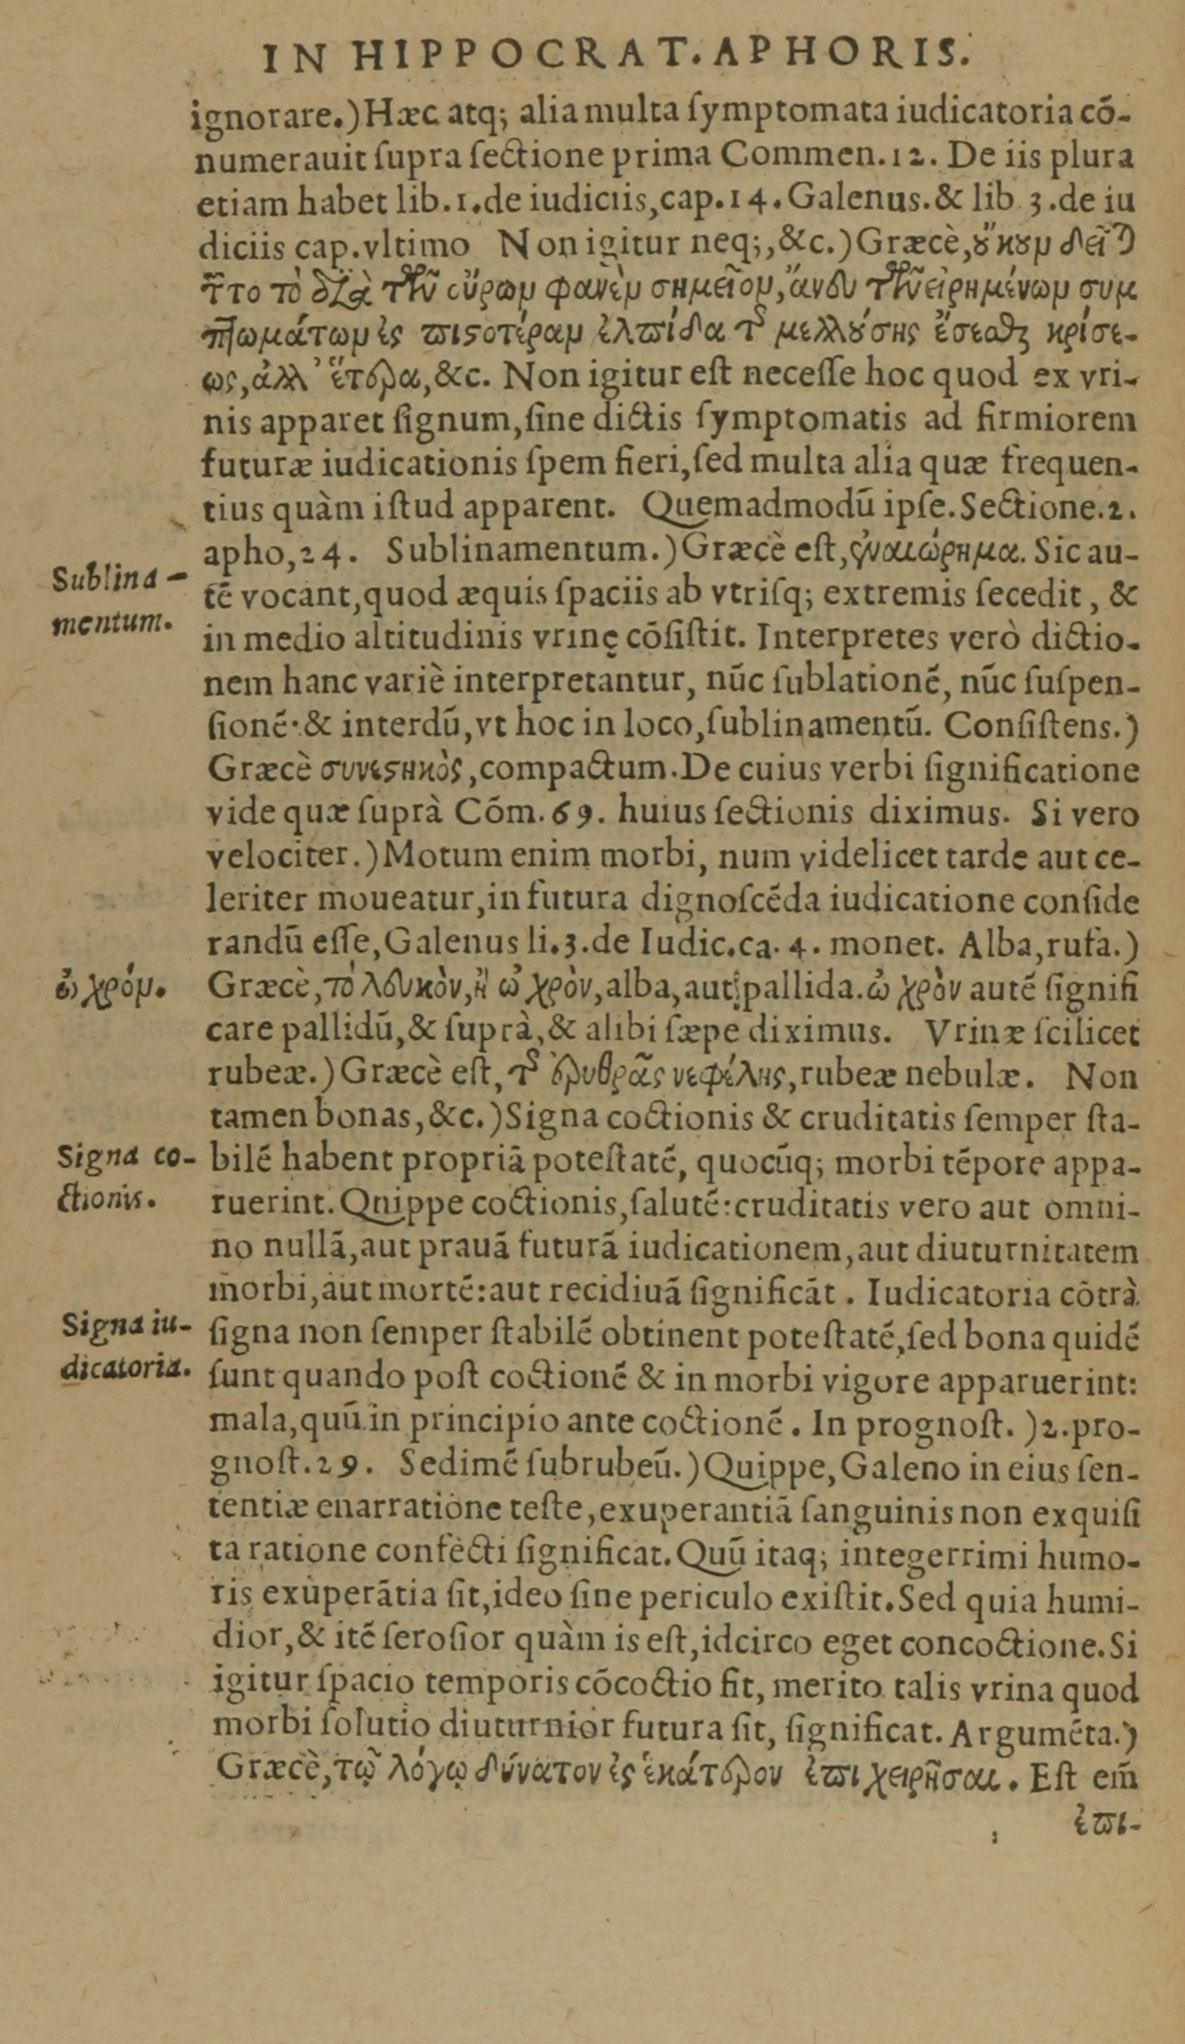 IN HIPPOCRAT. APHORIS.
ignorare.) Hæc atq; alia multa ſymptomata iudicatoria cō-
numerauit ſupra ſectione prima Commen. 12. De iis plura
etiam habet lib. 1. de iudiciis, cap. 14. Galenus. & lib 3. de iu
diciis cap. vltimo Non igitur neq;, &c.) Græcè, ȣ̓κȣμ δεῖ
τὸ οὔρωμ φανὲμ σημεῖομ, ἄνευ τῶν εἰρημένωμ συμ
πτωμάτωμ ἐς πιϛοτέραμ ἐλπίδα τ͂ μελλȣ́σης ἔσεσθαι κρίσε-
ως, ἀλλ’ ἕτερα, &c. Non igitur eſt neceſſe hoc quod ex vri-
nis apparet ſignum, ſine dictis ſymptomatis ad firmiorem
futuræ iudicationis ſpem fieri, ſed multa alia quæ frequen-
tius quàm iſtud apparent. Quemadmodū ipſe. Sectione. 2.
apho, 24. Sublinamentum.) Græcè eſt, ἐναιώρημα. Sic au-
Sublina-
tē vocant, quod æquis ſpaciis ab vtriſq; extremis ſecedit, &
mentum.
in medio altitudinis vrinę cōſiſtit. Interpretes verò dictio-
nem hanc variè interpretantur, nūc ſublationē, nūc ſuſpen-
ſionē· & interdū, vt hoc in loco, ſublinamentū. Conſiſtens.)
Græcè συνεϛηκὸς, compactum. De cuius verbi ſignificatione
vide quæ ſuprà Cōm. 69. huius ſectionis diximus. Si vero
velociter.) Motum enim morbi, num videlicet tarde aut ce-
leriter moueatur, in futura dignoſcēda iudicatione conſide
randū eſſe, Galenus li. 3. de Iudic. ca. 4. monet. Alba, rufa.)
ὠχρόμ.
Græcè, τὸ λευκὸν, ἢ ὠχρὸν, alba, aut pallida. ὠχρὸν autē ſignifi
care pallidū, & ſuprà, & alibi ſæpe diximus. Vrinæ ſcilicet
rubeæ.) Græcè eſt, τ͂ ἐρυθρᾶς νεφέλης, rubeæ nebulæ. Non
tamen bonas, &c.) Signa coctionis & cruditatis ſemper ſta-
Signa co-
bilē habent propriā poteſtatē, quocūq; morbi tēpore appa-
ctionis.
ruerint. Quippe coctionis, ſalutē: cruditatis vero aut omni-
no nullā, aut prauā futurā iudicationem, aut diuturnitatem
morbi, aut mortē: aut recidiuā ſignificāt. Iudicatoria cōtrà
Signa iu-
ſigna non ſemper ſtabilē obtinent poteſtatē, ſed bona quidē
dicatoria.
ſunt quando poſt coctionē & in morbi vigore apparuerint:
mala, quū in principio ante coctionē. In prognoſt.) 2. pro-
gnoſt. 29. Sedimē ſubrubeū.) Quippe, Galeno in eius ſen-
tentiæ enarratione teſte, exuperantiā ſanguinis non exquiſi
ta ratione confecti ſignificat. Quū itaq; integerrimi humo-
ris exuperātia ſit, ideo ſine periculo exiſtit. Sed quia humi-
dior, & itē ſeroſior quàm is eſt, idcirco eget concoctione. Si
igitur ſpacio temporis cōcoctio fit, merito talis vrina quod
morbi ſolutio diuturnior futura ſit, ſignificat. Argumēta.)
Græcè, τῷ λόγῳ δύνατον ἐς ἑκάτερον ἐπιχειρῆσαι. Eſt em̄
ἐπι-